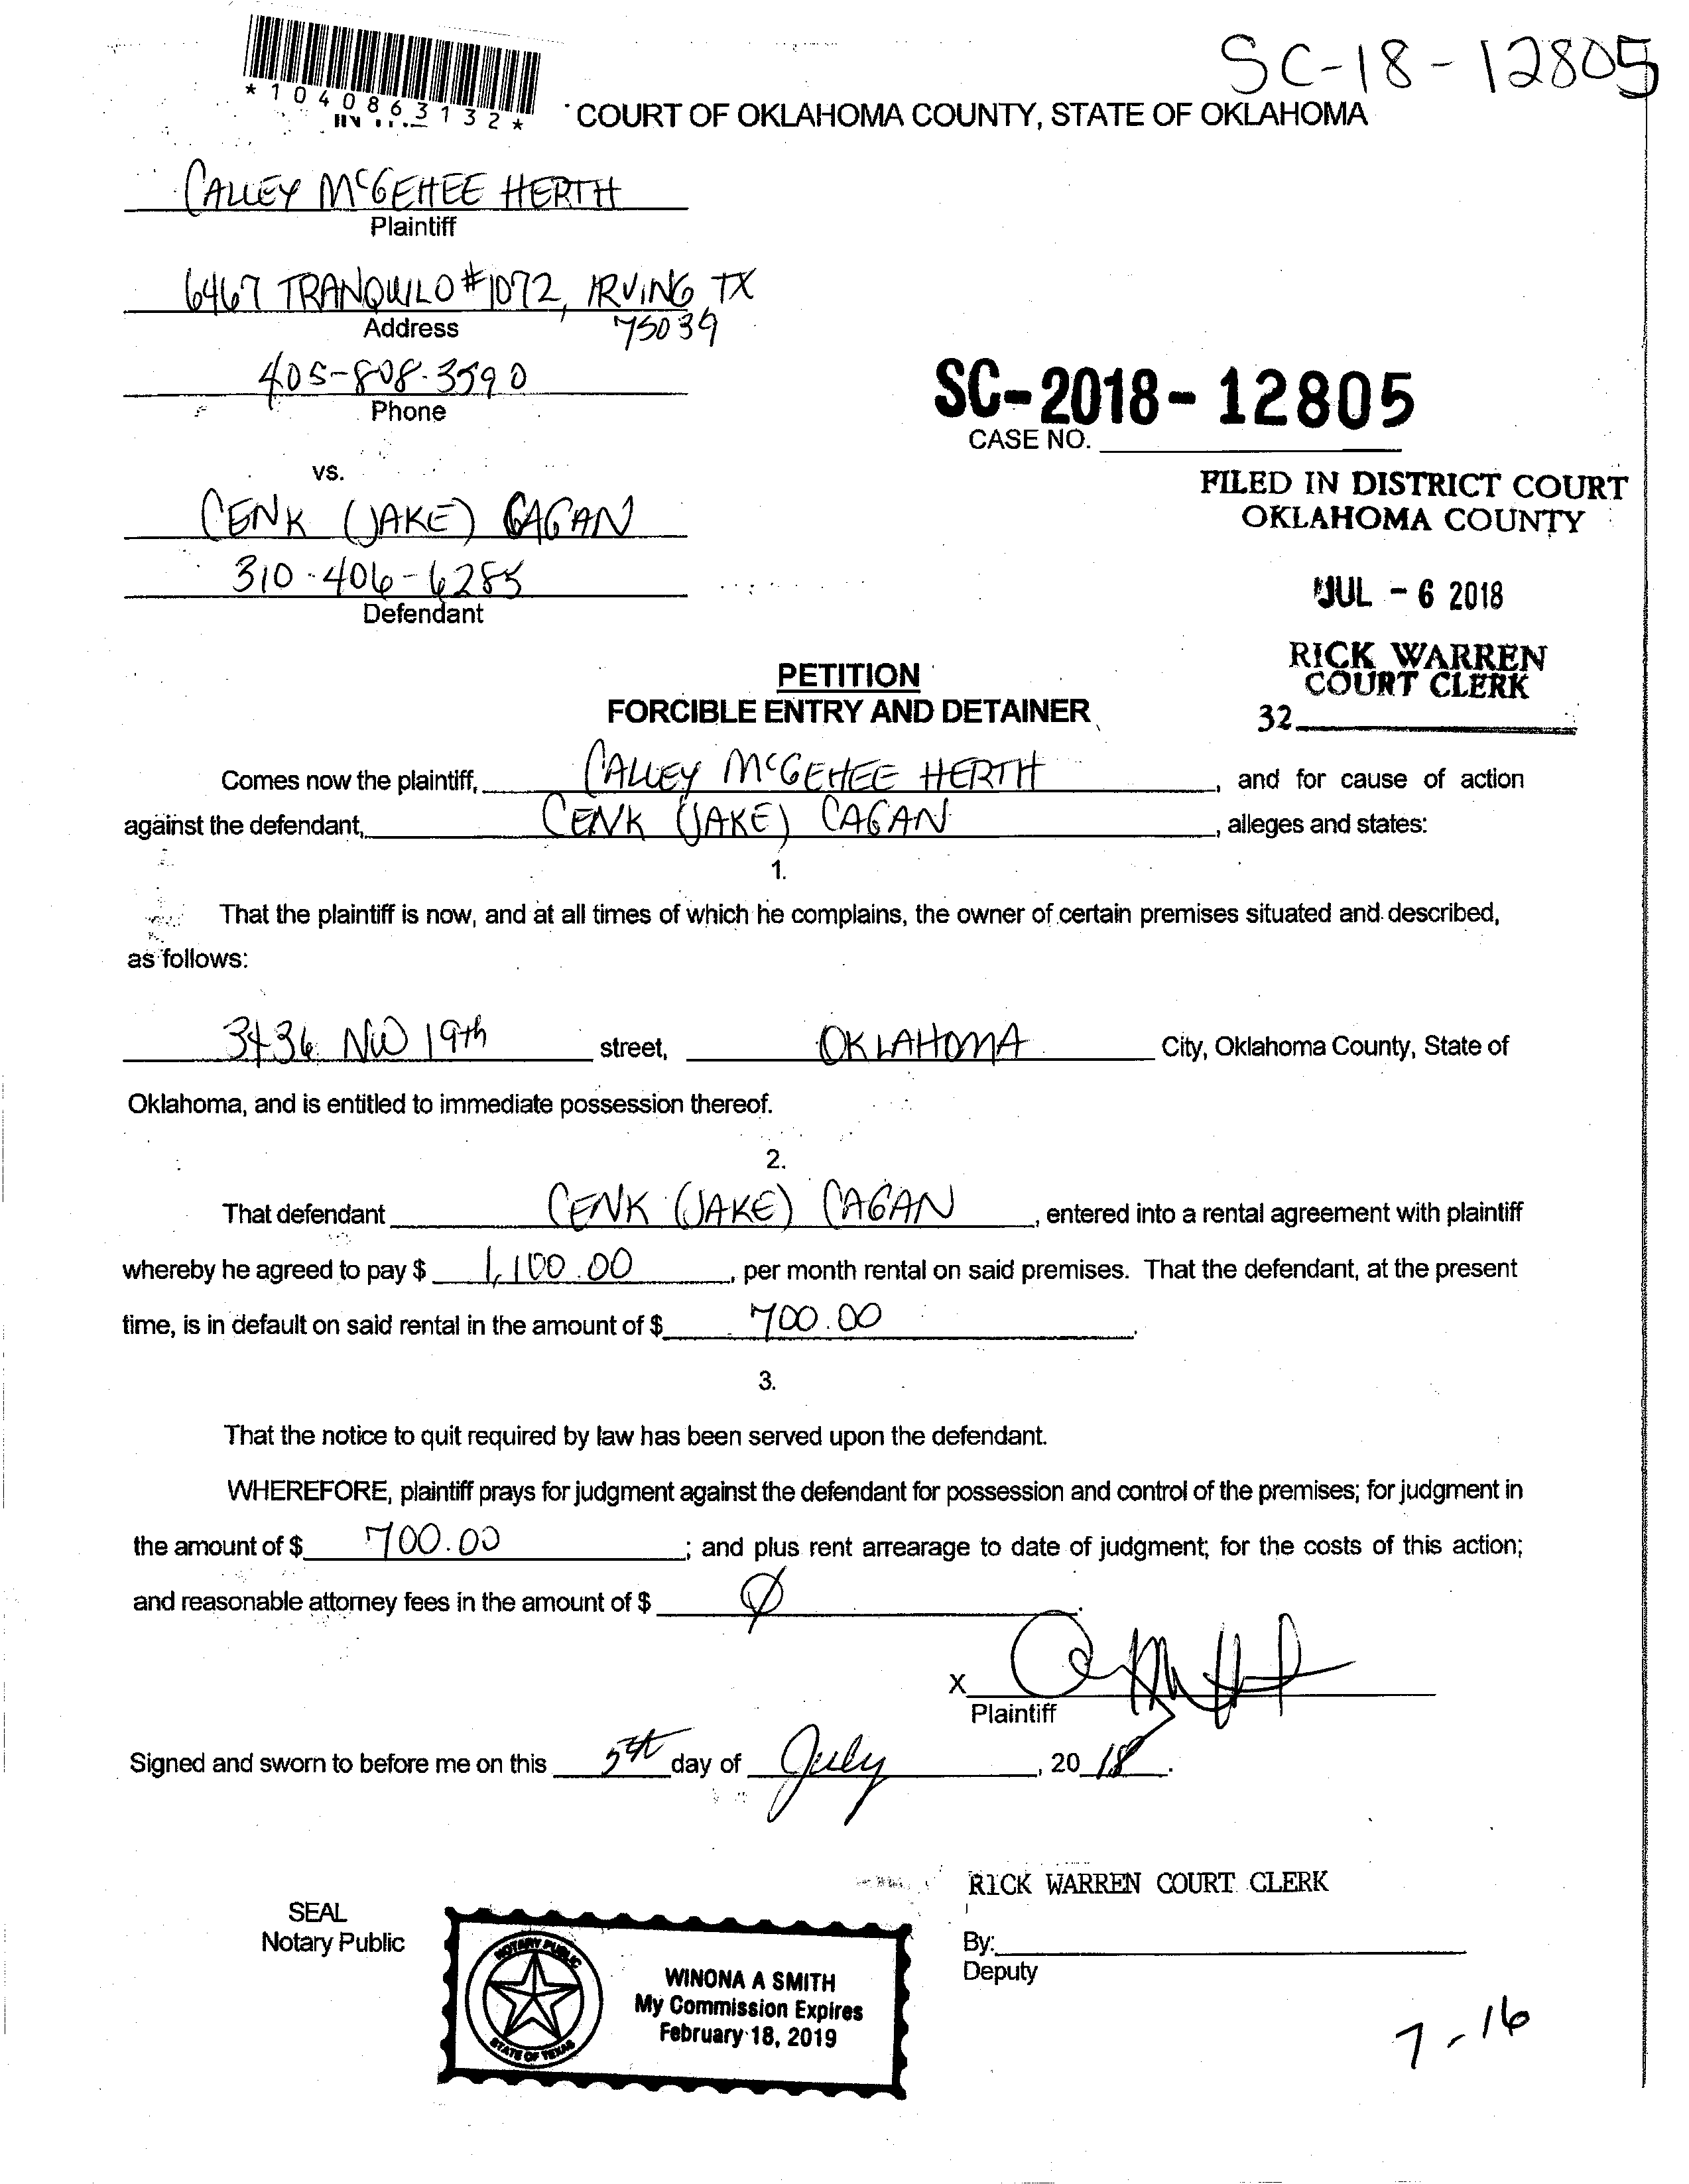 SC-18-12805
*1040863132*
COURT OF OKLAHOMA COUNTY, STATE OF OKLAHOMA
CALLEY McGEHEE HERTH
Plaintiff
6467 TRANQUILO #1072, IRVING TX
Address 75039
405-808-3590
Phone
SC-2018-12805
CASE NO.
vs.
FILED IN DISTRICT COURT
OKLAHOMA COUNTY
CENK (JAKE) CAGAN
310-406-6285
Defendant
JUL - 6 2018
RICK WARREN
COURT CLERK
32
PETITION
FORCIBLE ENTRY AND DETAINER
Comes now the plaintiff, CALLEY McGEHEE HERTH, and for cause of action
against the defendant, CENK (JAKE) CAGAN, alleges and states:
1.
That the plaintiff is now, and at all times of which he complains, the owner of certain premises situated and described,
as follows:
3436 NW 19th street, OKLAHOMA City, Oklahoma County, State of
Oklahoma, and is entitled to immediate possession thereof.
2.
That defendant CENK (JAKE) CAGAN, entered into a rental agreement with plaintiff
whereby he agreed to pay $ 1,100.00, per month rental on said premises. That the defendant, at the present
time, is in default on said rental in the amount of $ 700.00.
3.
That the notice to quit required by law has been served upon the defendant.
WHEREFORE, plaintiff prays for judgment against the defendant for possession and control of the premises; for judgment in
the amount of $ 700.00; and plus rent arrearage to date of judgment; for the costs of this action;
and reasonable attorney fees in the amount of $ Ø.
X
Plaintiff
Signed and sworn to before me on this 5th day of July, 2018.
RICK WARREN COURT CLERK
SEAL
Notary Public
By:
Deputy
NOTARY PUBLIC
STATE OF TEXAS
WINONA A SMITH
My Commission Expires
February 18, 2019
7-16